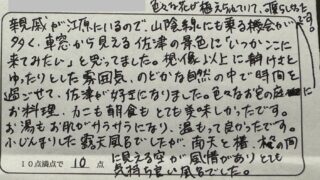 色々な花が植えられていて、癒されました
です。
親戚が江原にいるので、山陰線にも乗る機会が
多く、車窓から見える佐津の景色に「いつかここに
来てみたい」と思ってました。想像以上に静けさと
ゆったりとした雰囲気、のどかな自然の中で時間を
過ごせて、佐津が好きになりました。色々なお色の
お料理、カニも朝食もとても美味しかったです。
お湯もお肌がサラサラになり、温もって良かったです。
こじんまりした露天風呂でしたが、南天と
間
１０点満点で 10 点
に見える空が風情がありとても
気持ち良い風呂でした。